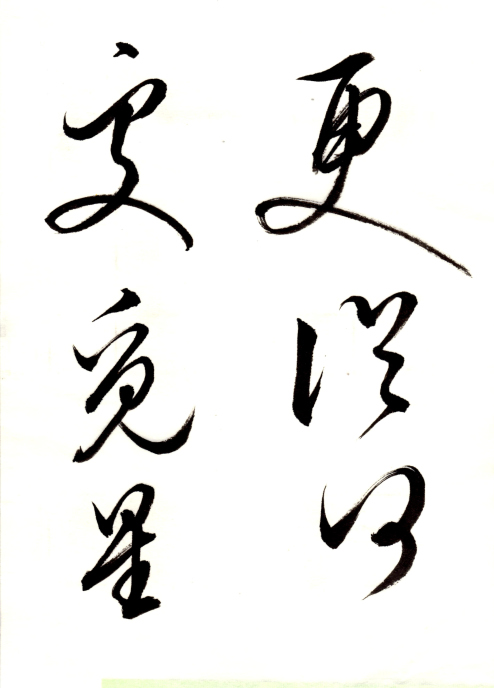 更從何
處覓星